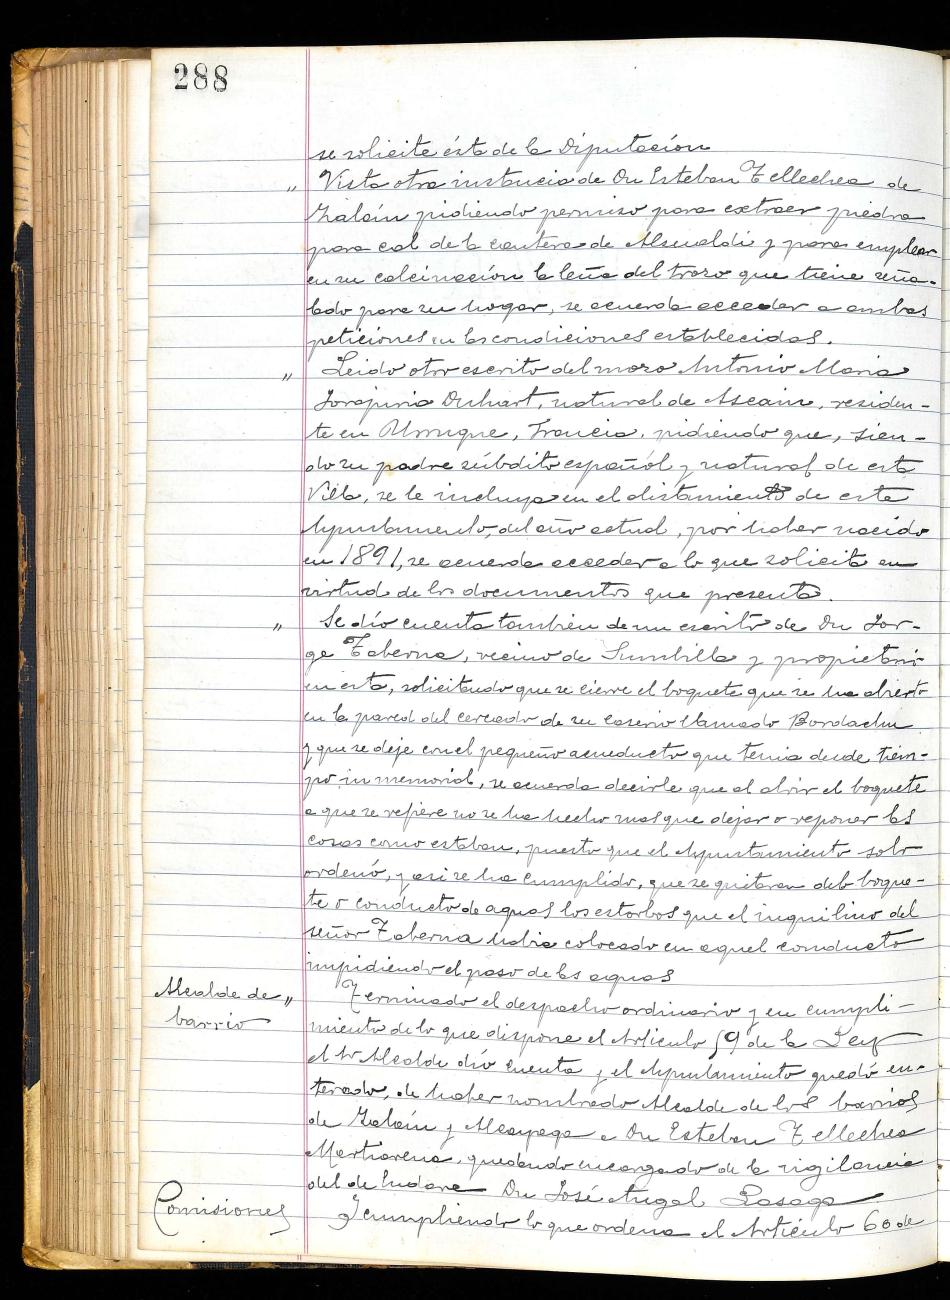 288
se solicite ésta de la Diputación
„ Vista otra instancia de Dn Esteban Tellechea de
Zalain pidiendo permiso para extraer piedra
para cal de la cantera de Alsualdi y para emplear
en su calcinación la leña del trozo que tiene seña-
lado para su hogar, se acuerda acceder a ambas
peticiones en las condiciones establecidas.
„ Leido otro escrito del mozo Antonio Maria
Duhart, natural de Ascain, residen-
te en Urrugne, Francia, pidiendo que, sien-
do su padre súbdito español y natural de esta
Villa, se le incluya en el alistamiento de este
Ayuntamiento, del año actual, por haber nacido
en 1891, se acuerda acceder a lo que solicita en
virtud de los documentos que presenta.
„ Se dío cuenta también de un escrito de Dn Jor-
ge Taberna, vecino de Sumbilla y propietario
en esta, solicitando que se cierre el boquete que se ha abierto
en la pared del cercado de su caserio llamado Bordachu
y que se deje con el pequeño acueducto que tenia desde tiem-
po inmemorial, se acuerda decirle que al abrir el boquete
a que se refiere no se ha hecho mas que dejar o reponer las
cosas como estaban, puesto que el Ayuntamiento solo
ordenó, y asi se ha cumplido, que se quitaran del boque-
te o conducto de aguas los estorbos que el inquilino del
señor Taberna habia colocado en aquel conducto
impidiendo el paso de las aguas
Alcalde de „ Terminado el despacho ordinario y en cumpli-
barrio miento de lo que dispone el Articulo 59 de la Ley
el Sr Alcalde dío cuenta y el Ayuntamiento quedó en-
terado, de haber nombrado Alcalde de los barrios
de Zalain y Alcayaga a Dn Esteban Tellechea
Martiarena, quedando encargado de la vigilancia
del de Dn José Angel Lasaga
Comisiones Y cumpliendo lo que ordena el Artículo 60 de